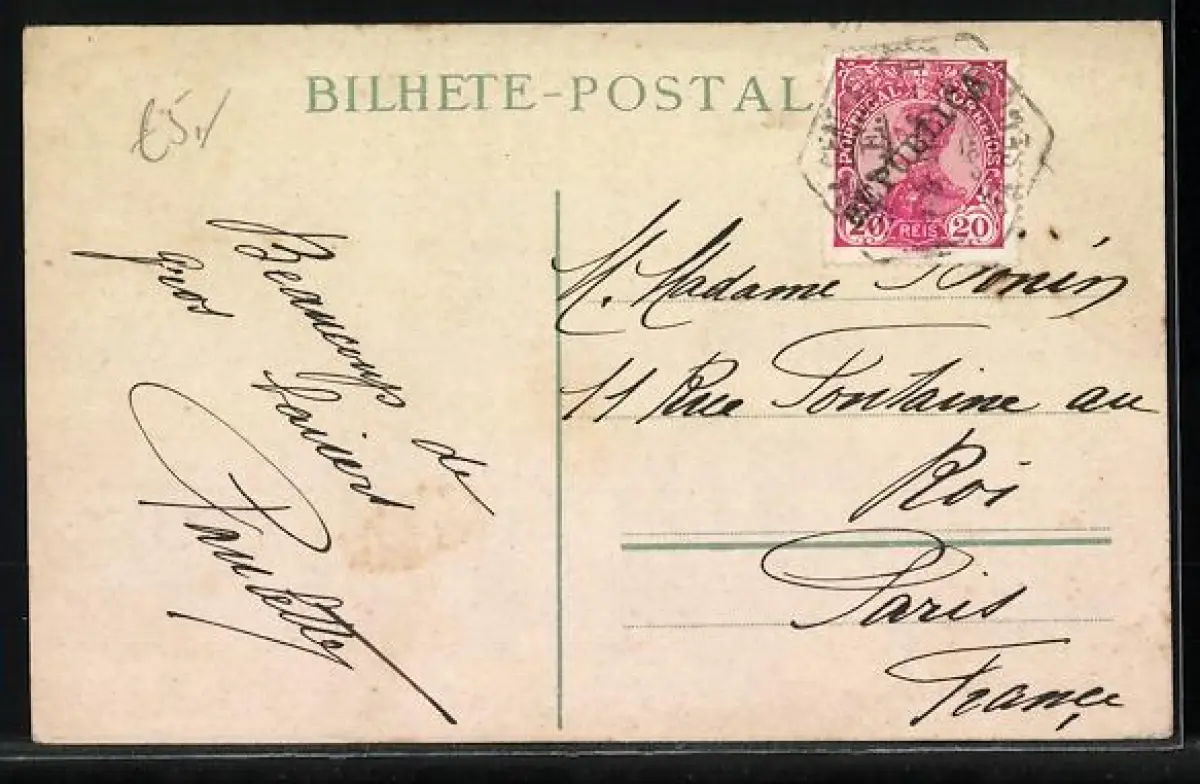 BILHETE-POSTAL
£5
PORTUGAL CORREIOS
REPUBLICA
20 REIS 20
Beaucoup de
gros baisers
Paulette
M. Madame Bonin
11 Rue Fontaine au
Roi
Paris
France